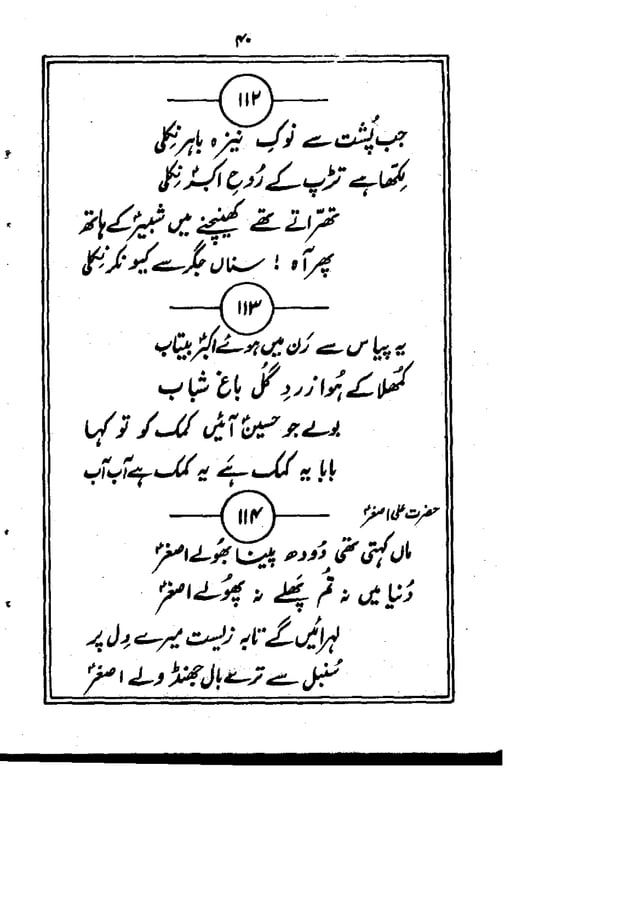 ۴۰
۱۱۲
جب پُشت سے نوکِ نیزہ باہر نِکلی
لِکھّا ہے تڑپ کے رُوحِ اکبرؑ نِکلی
تھرّاتے تھے کھینچنے میں شبیرؑ کے ہاتھ
پھر آہ ! سناں جگر سے کیونکر نِکلی
۱۱۳
یہ پیاس سے رَن میں ہوئے اکبرؑ بیتاب
کُمھلا کے ہُوا زردِ گُل باغِ شباب
بولے جو حسینؑ آئیں کمک کو تو کہا
بابا یہ کمک ہَے یہ کمک ہے آب آب
حضرت علی اصغرؑ
۱۱۴
ماں کہتی تھی دُودھ پینا بھُولے اصغرؑ
دُنیا میں نہ تُم پَھلے نہ پھُولے اصغرؑ
لہرائیں گے تابہ زیست میرے دِل پر
سُنبل سے ترے بال جھنڈولے اصغرؑ